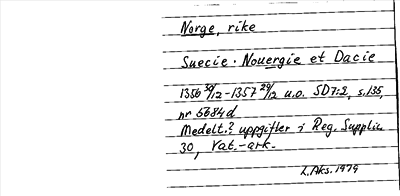 Norge, rike
Suecie · Nouergie et Dacie
1356 30/12-1357 29/12 u.o. SD7:2, s.135,
nr 5684d
Medelt.? uppgifter i Reg. Supplic.
30, Vat.-ark.
L.Aks. 1979